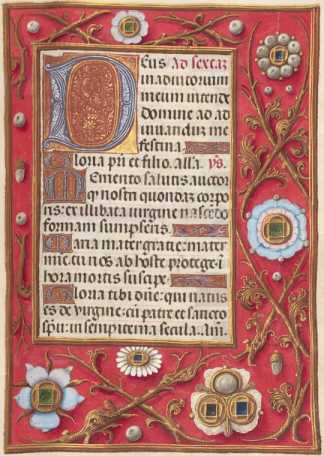 Deus Ad sextam
in adiutorium
meum intende
domine ad ad
iuuandum me
festina.
Gloria p̄ri et filio. alla. ỹs.
Memento salutis auctor
qr nostri quondam corpo
ris: ex illibata virgine nascedo
formam sumpseris.
Maria mater gratie: mater
mie. tu nos ab hoste protege: i
hora mortis suscipe.
Gloria tibi dn̄e: qui natus
es de virgine: cū patre et sancto
spū: in sempiterna secula. Am̄.